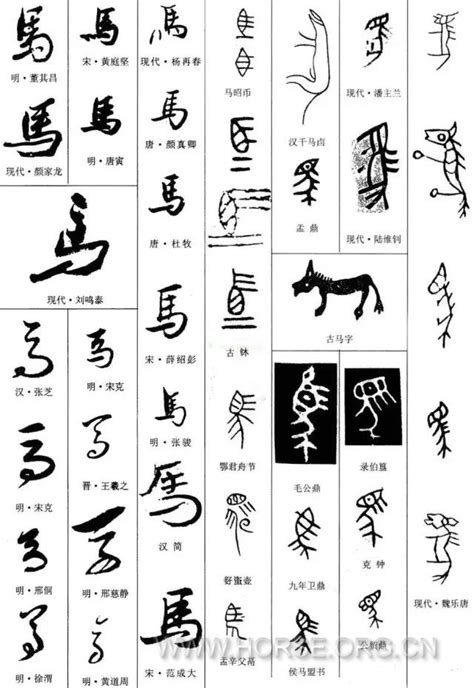 馬
明·董其昌
馬
现代·颜家龙
馬
现代·刘鸣泰
汉·张芝
明·宋克
明·邢侗
明·徐渭
馬
宋·黄庭坚
馬
明·唐寅
明·宋克
晋·王羲之
明·邢慈静
明·黄道周
馬
现代·杨再春
馬
唐·颜真卿
馬
唐·杜牧
馬
宋·薛绍彭
馬
明·张骏
馬
汉简
馬
宋·范成大
马昭币
古钵
鄂君舟节
盂辛父鬲
汉千马卣
盂鼎
古马字
毛公鼎
九年卫鼎
侯马盟书
现代·潘主兰
现代·陆维钊
录伯簋
克钟
公贸鼎
现代·魏乐唐
WWW.HORSE.ORG.CN